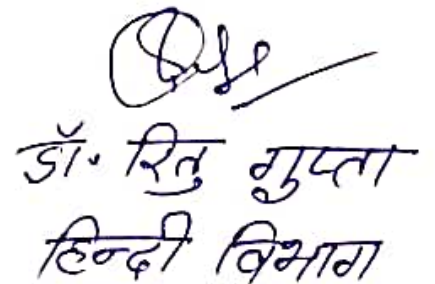 डॉ. रितु गुप्ता
हिन्दी विभाग